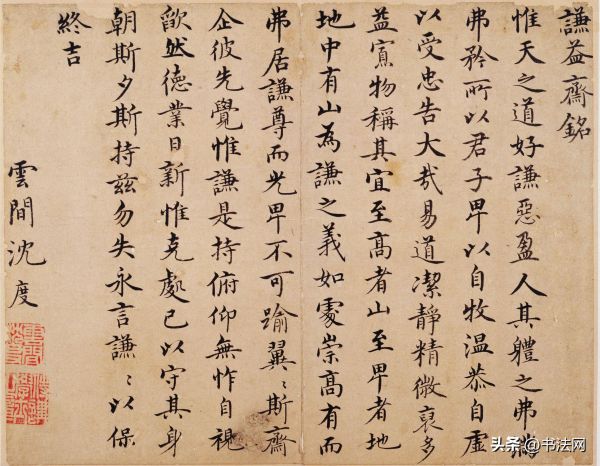 謙益齋銘
惟天之道好謙惡盈人其體之弗滿
弗矜所以君子卑以自牧溫恭自虛
以受忠告大哉易道潔靜精微裒多
益寡物稱其宜至高者山至卑者地
地中有山為謙之義如處崇高有而
弗居謙尊而光卑不可踰翼〻斯齋
企彼先覺惟謙是持俯仰無怍自視
歉然德業日新惟克處已以守其身
朝斯夕斯持茲勿失永言謙〻以保
終吉
雲間沈度
头条@书法网